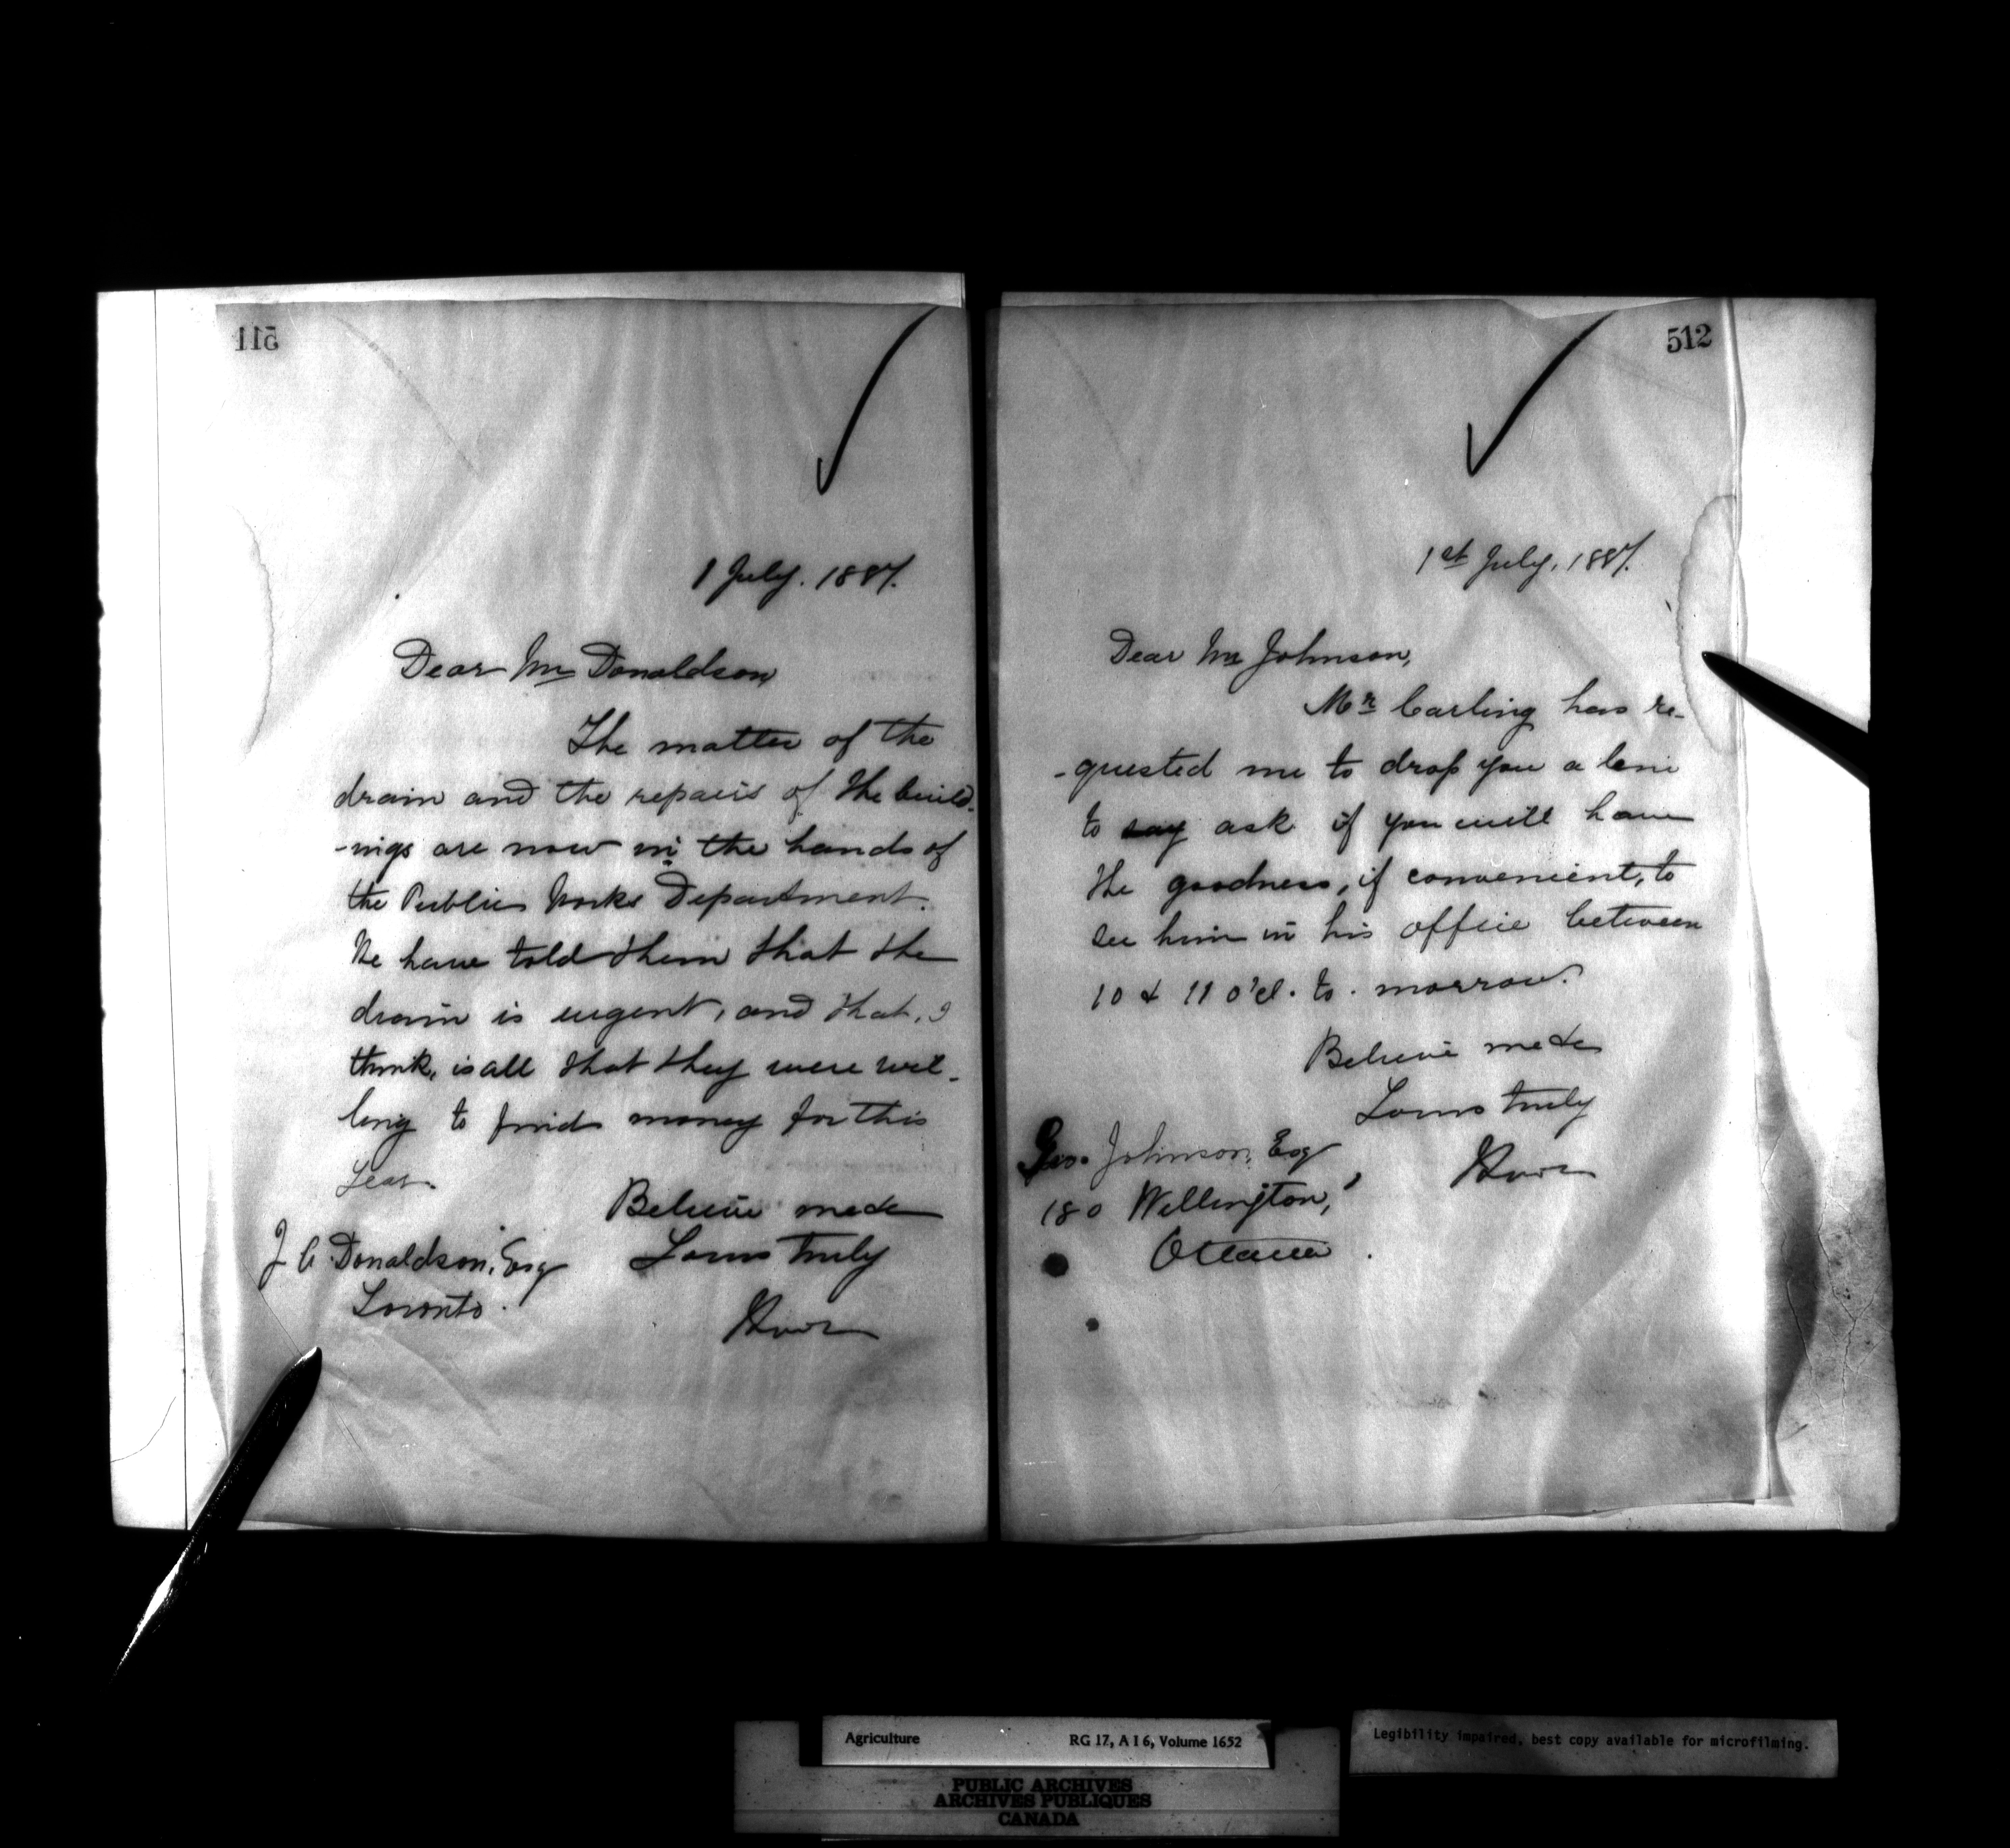 511
1 July. 1887.
Dear Mr Donaldson
The matter of the
drain and the repairs of the build-
-ings are now in the hands of
the Public Works Department.
We have told them that the
drain is urgent, and that, I
think, is all that they were wil-
ling to find money for this
Year.
Believe me dr
Yours truly
J C Donaldson, Esq
Toronto.
512
1st July, 1887.
Dear Mr Johnson,
Mr Carling has re-
-quested me to drop you a line
to say ask if you will have
the goodness, if convenient, to
see him in his office between
10 & 11 o'cl. to-morrow.
Believe me dr
Yours truly
Geo. Johnson, Esq
180 Wellington,
Ottawa.
Agriculture RG 17, A I 6, Volume 1652
Legibility impaired, best copy available for microfilming.
PUBLIC ARCHIVES
ARCHIVES PUBLIQUES
CANADA